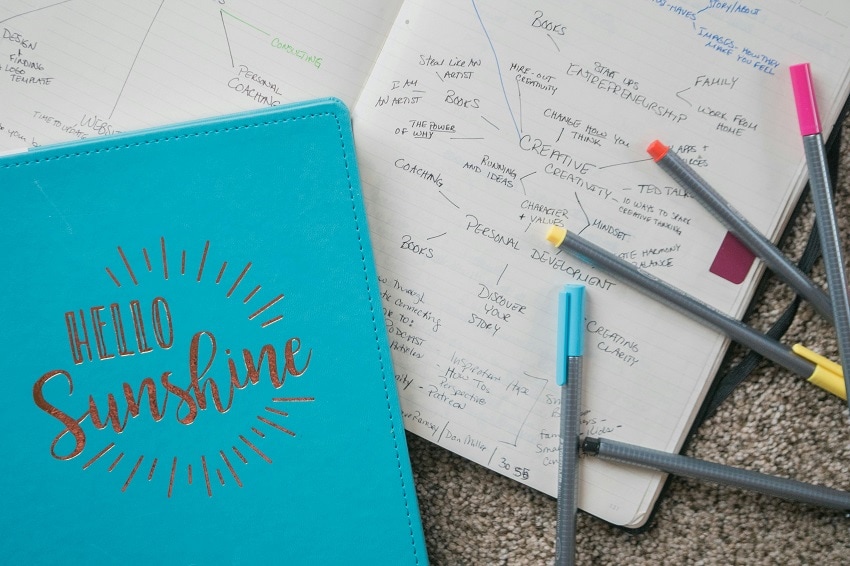 DESIGN
+
FINDING
LOGO
TEMPLATE
CONSULTING
PERSONAL
COACHING
TIME TO UPDATE
WEBSITE
HELLO
Sunshine
STORY/ABOUT
IMAGES - HOW THEY
MAKE YOU FEEL
BOOKS
STEAL LIKE AN
ARTIST
I AM
AN ARTIST
BOOKS
THE POWER
OF WHY
HIRE-OUT
CREATIVITY
START UPS
ENTREPRENEURSHIP
FAMILY
WORK FROM
HOME
CHANGE HOW YOU
THINK
CREATIVE
CREATIVITY
APPS +
RUNNING
AND IDEAS
TED TALKS
10 WAYS TO SPARK
CREATIVE THINKING
MINDSET
HARMONY
BALANCE
COACHING
CHARACTER
+ VALUES
PERSONAL DEVELOPMENT
BOOKS
DISCOVER
YOUR
STORY
CREATING
CLARITY
Through
Connecting
TO:
Inspiration
- HOW TOS
Perspective
- Patreon